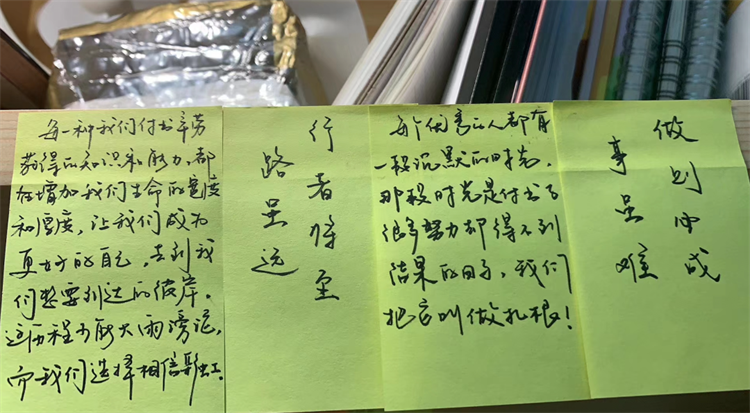 每一种我们付出辛劳
获得的知识和能力,都
在增加我们生命的宽度
和厚度,让我们成为
更好的自己,去到我
们想要到达的彼岸。
这历程可能大雨滂沱,
而我们选择相信彩虹。
路虽远
行者将至
每个优秀的人都有
一段沉默的时光,
那段时光是付出了
很多努力却得不到
结果的日子,我们
把它叫做扎根!
事虽难
做则必成